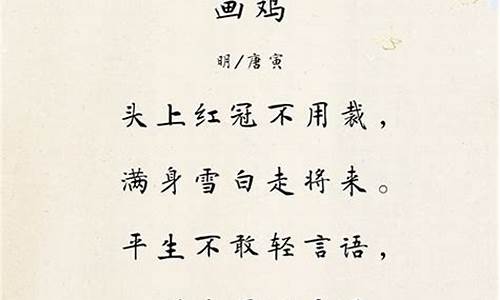 画鸡
明/唐寅
头上红冠不用裁，
满身雪白走将来。
平生不敢轻言语，